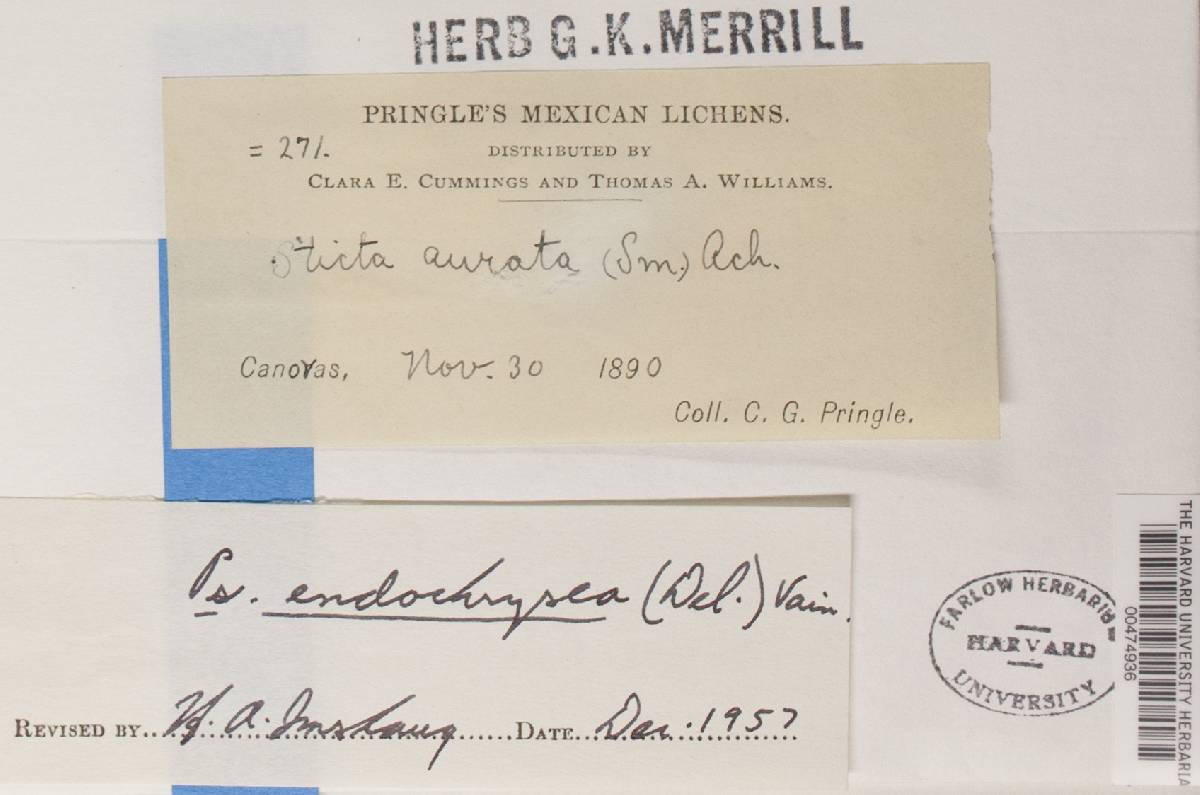 HERB G.K.MERRILL
PRINGLE'S MEXICAN LICHENS.
= 271.
DISTRIBUTED BY
CLARA E. CUMMINGS AND THOMAS A. WILLIAMS.
Sticta aurata (Sm.) Ach.
Canovas, Nov. 30 1890
Coll. C. G. Pringle.
Ps. endochrysea (Del.) Vain.
REVISED BY.. H. A. Imshaug ......DATE... Dec. 1957
FARLOW HERBARIU
HARVARD
UNIVERSITY
THE HARVARD UNIVERSITY HERBARIA
00474936